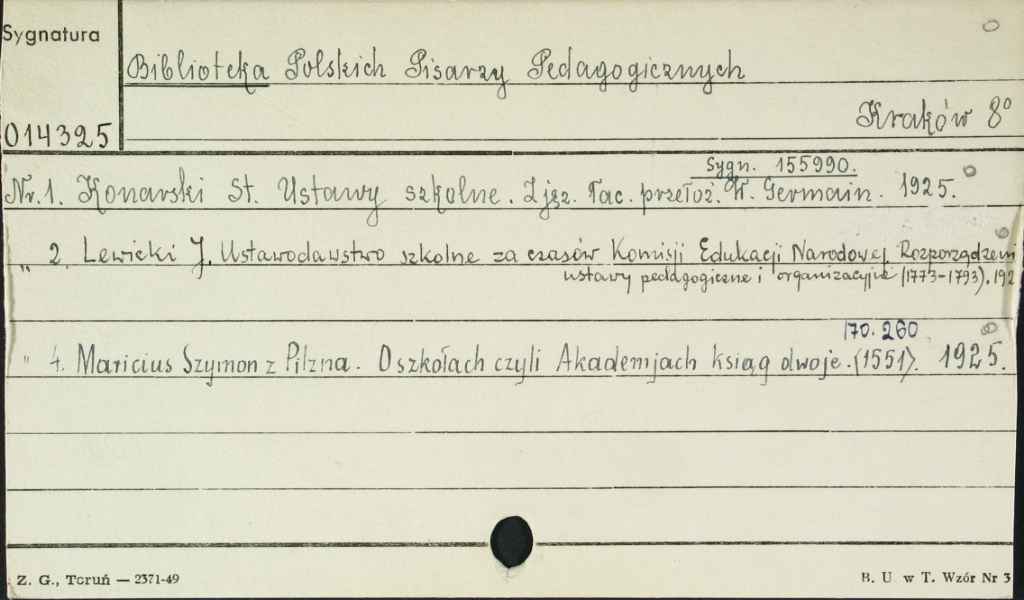 Sygnatura
Biblioteka Polskich Pisarzy Pedagogicznych
Kraków 8°
014325
Sygn. 155990.
Nr. 1. Konarski St. Ustawy szkolne. Z jęz. łac. przełoż. W. Germain. 1925.
„ 2. Lewicki J. Ustawodawstwo szkolne za czasów Komisji Edukacji Narodowej Rozporządzeni
ustawy pedagogiczne i organizacyjne (1773-1793). 192
170.260
„ 4. Maricius Szymon z Pilzna. O szkołach czyli Akademjach ksiąg dwoje. (1551). 1925.
Z. G., Toruń — 2371-49
B. U w T. Wzór Nr 3